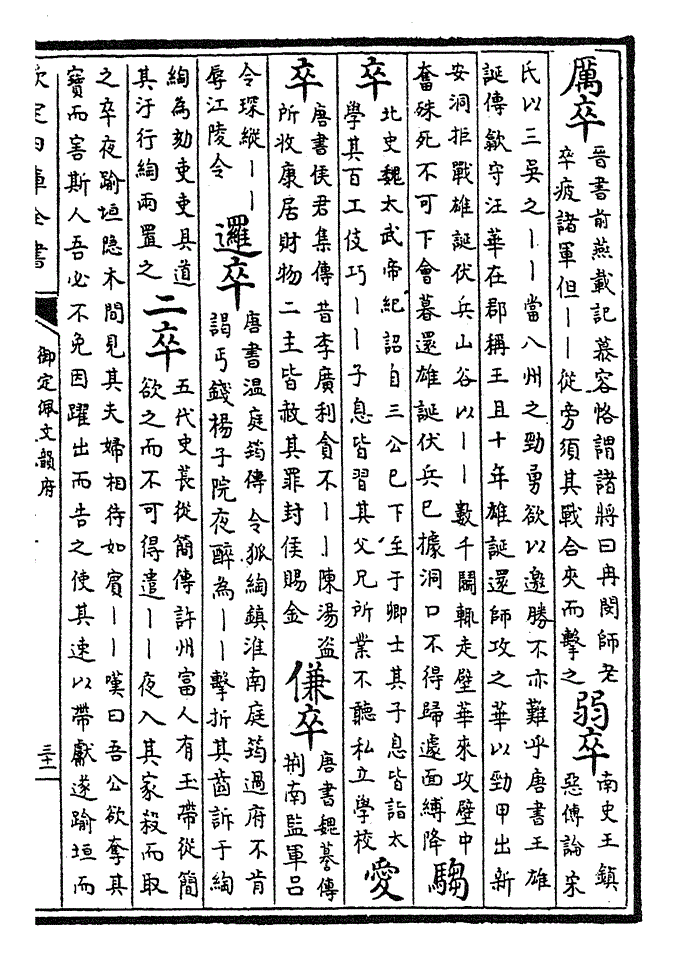 厲卒
晉書前燕載記慕容恪謂諸將曰冉閔師老
卒疲諸軍但丨丨從旁須其戰合夾而擊之
弱卒
南史王鎮
惡傳論宋
氏以三吳之丨丨當八州之勁勇欲以邀勝不亦難乎唐書王雄
誕傳歙守汪華在郡稱王且十年雄誕還師攻之華以勁甲出新
安洞拒戰雄誕伏兵山谷以丨丨數千鬭輒走壁華來攻壁中
奮殊死不可下會暮還雄誕伏兵已據洞口不得歸遽面縛降
騶
卒
北史魏太武帝紀詔自三公已下至于卿士其子息皆詣太
學其百工伎巧丨丨子息皆習其父兄所業不聽私立學校
愛
卒
唐書侯君集傳昔李廣利貪不丨丨陳湯盜
所收康居財物二主皆赦其罪封侯賜金
傔卒
唐書魏謩傳
荆南監軍呂
令琛縱丨丨
辱江陵令
邏卒
唐書溫庭筠傳令狐綯鎮淮南庭筠過府不肯
謁丐錢楊子院夜醉為丨丨擊折其齒訴于綯
綯為劾吏吏具道
其汙行綯兩置之
二卒
五代史萇從簡傳許州富人有玉帶從簡
欲之而不可得遣丨丨夜入其家殺而取
之卒夜踰垣隱木間見其夫婦相待如賓丨丨嘆曰吾公欲奪其
寶而害斯人吾必不免因躍出而告之使其速以帶獻遂踰垣而
欽定四庫全書
御定佩文韻府
三十二